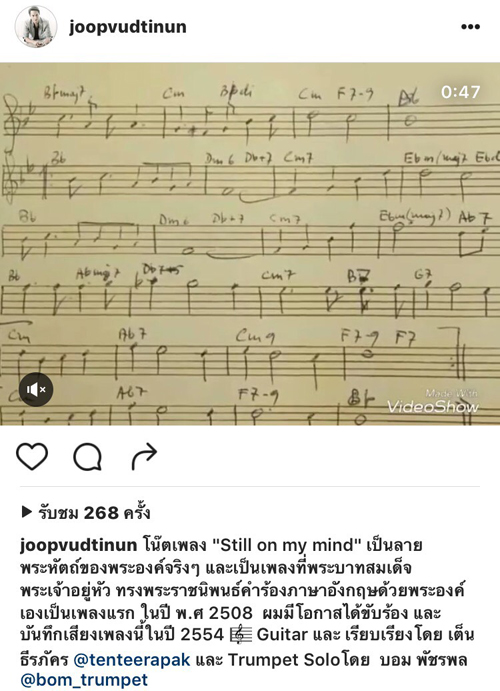 joopvudtinun
0:47
Bbmaj7 Cm Bbdi Cm F7-9 Bb
Bb Dm6 Db+7 Cm7 Ebm/maj7
Bb Dm6 Db+7 Cm7 Ebm(maj7) Ab7
Bb Abmaj7 Db7-5 Cm7 G7
Cm Ab7 Cm9 F7-9 F7
Ab7 F7-9
Made With
VideoShow
รับชม 268 ครั้ง
joopvudtinun โน๊ตเพลง "Still on my mind" เป็นลาย
พระหัตถ์ของพระองค์จริงๆ และเป็นเพลงที่พระบาทสมเด็จ
พระเจ้าอยู่หัว ทรงพระราชนิพนธ์คำร้องภาษาอังกฤษด้วยพระองค์
เองเป็นเพลงแรก ในปี พ.ศ 2508 ผมมีโอกาสได้ขับร้อง และ
บันทึกเสียงเพลงนี้ในปี 2554 🎼 Guitar และ เรียบเรียงโดย เต็น
ธีรภัคร @tenteerapak และ Trumpet Soloโดย บอม พัชรพล
@bom_trumpet